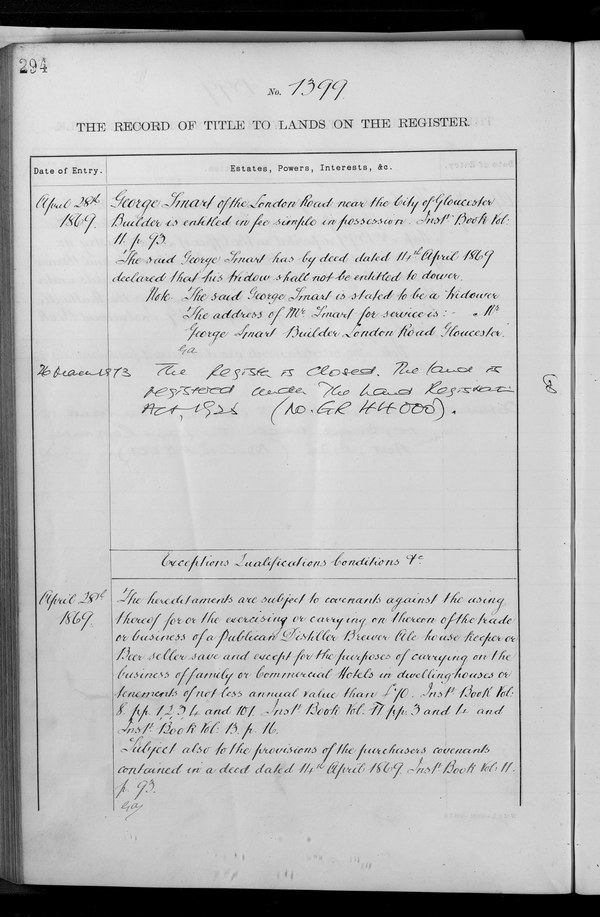 294
No. 1399
THE RECORD OF TITLE TO LANDS ON THE REGISTER.
Date of Entry. Estates, Powers, Interests, &c.
April 28th 1869. George Smart of the London Road near the City of Gloucester
Builder is entitled in fee simple in possession. Inst. Book Vol:
11. p. 93.
The said George Smart has by deed dated 14th April 1869
declared that his Widow shall not be entitled to dower.
Note. The said George Smart is stated to be a Widower
The address of Mr. Smart for service is: - Mr
George Smart Builder London Road Gloucester.
26 March 1973 The Register is closed. The land is
registered under The Land Registration
Act, 1925 (No. GR 44000).
Exceptions Qualifications Conditions &c
April 28th 1869. The hereditaments are subject to covenants against the using
thereof for or the exercising or carrying on thereon of the trade
or business of a Publican Distiller Brewer Ale house keeper or
Beer seller save and except for the purposes of carrying on the
business of family or Commercial Hotels in dwellinghouses or
tenements of not less annual value than £70. Inst. Book Vol:
8. pp. 1, 2, 3, 4 and 101. Inst. Book Vol. 11 pp. 3 and 4 and
Inst. Book Vol. 13. p. 16.
Subject also to the provisions of the purchasers covenants
contained in a deed dated 14th April 1869. Inst. Book Vol. 11.
p. 93.